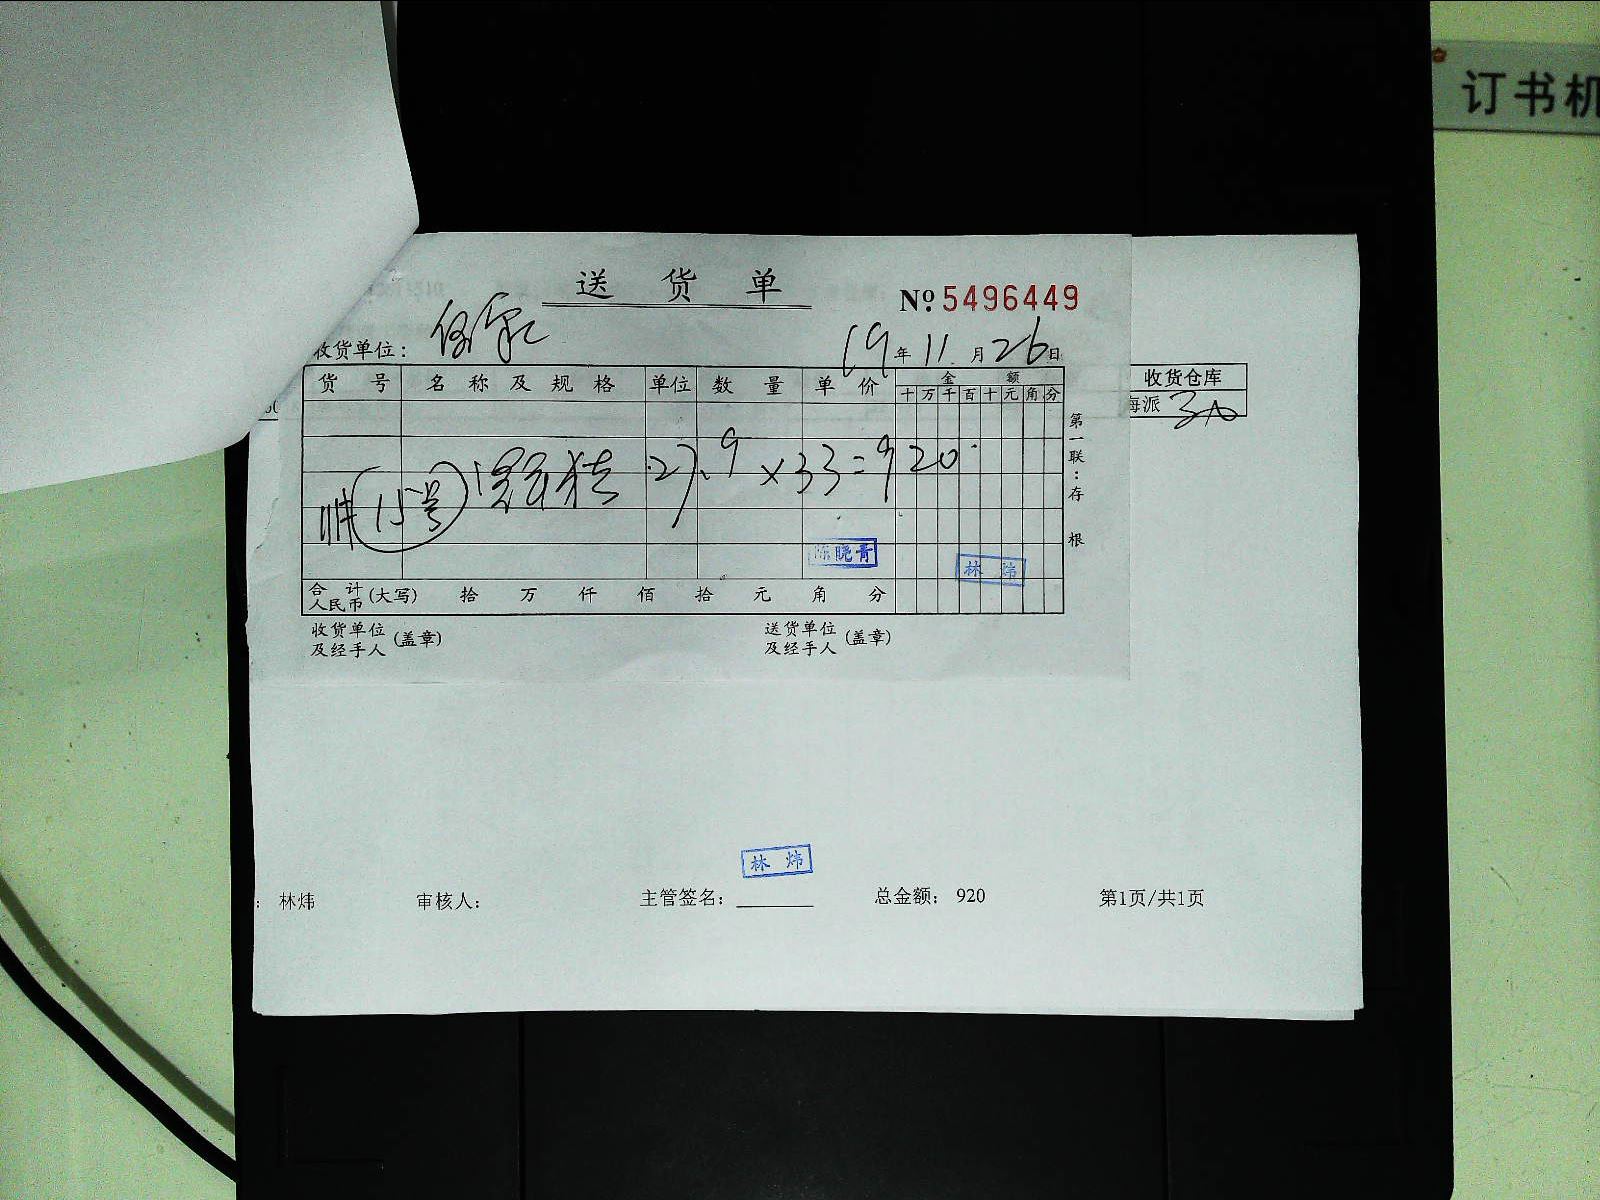 订书机
送货单
№ 5496449
收货单位:
19年11月26日
货号 名称及规格 单位 数量 单价 金额
十万千百十元角分
收货仓库
海派
15号 27.9×33=920
第一联:存根
陈晓青
林炜
合计人民币(大写) 拾 万 仟 佰 拾 元 角 分
收货单位及经手人(盖章) 送货单位及经手人(盖章)
林炜
: 林炜 审核人: 主管签名: 总金额: 920 第1页/共1页